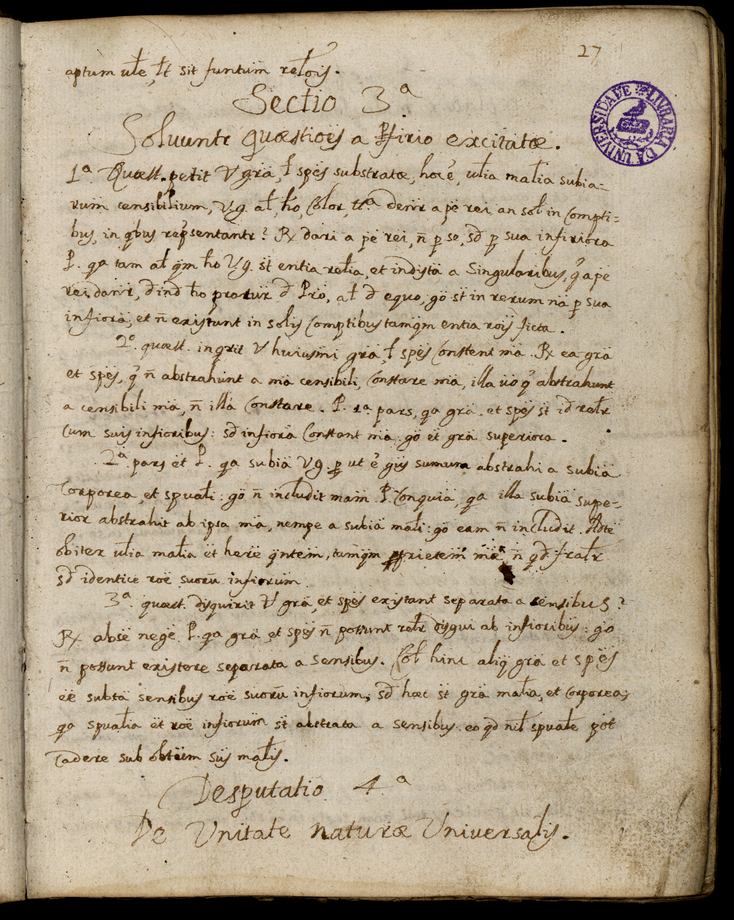 27
aptum ułe, łt sit funtum rełois.
Sectio 3ª
Soluuntr quæstiões a Pfirio excitatæ.
1ª Quæst. petit V grã, ł spẽs substratæ, hoc ẽ, ułia małia subia-
rum censibilium, Vg. ał, ho, Color, ttª denr a pe rei an soł in Compti-
bus, in qbus repsentantr? R dari a pe rei, ñ p se, sd p sua infiriora
P. qa tam ał qm ho Vg. st entia rełia, et indista a Singularibus, q a pe
rei danr, d ind ho pratur d Prio, ał d equo, go st in rerum na p sua
infiora, et ñ existunt in solis Comptibus tamqm entia rois ficta.
2º. quæst. inqrit V huiusmi grã, ł spẽs Constent mã. R ea grã
et spẽs, q ñ abstrahunt a mã censibili, Constare mã, illa uo q abstrahunt
a censibili mã, ñ illã Constare. P. 1ª pars, qa grã, et spẽs st id rełr
Cum suis infioribus: sd infiora Constant mã: go et grã superiora.
2ª. pars et P. qa subiã Vg. p ut ẽ gus sumum abstrahi a subiã
Corporea, et spuałi: go ñ includit mam. P. Conquiã, qa illa subiã supe-
rior abstrahit ab ipsa mã, nempe a subiã małi: go eam ñ includit.
obiter ułia małia et here qntem, tamqm prietem mæ, ñ qd
sd identice roe suoru infiorum.
3ª. quæst. disquirit V grã, et spẽs existant separata a sensibus?
R absẽ negẽ. P. qa grã et spẽs ñ possunt rełr disgui ab infioribus: go
ñ possunt existere separata a sensibus. Coł hinc aliq grã et spẽs
eẽ subta sensibus roe suoru infiorum, sd hæc st grã małia, et Corporea;
qa spuałia et roe infiorum st abstrata a sensibus eo qd nił spuałe pot
Cadere sub obteum sus małis.
Desputatio 4ª
De Unitate naturæ Universalis.
LIVRARIA DA UNIVERSIDADE